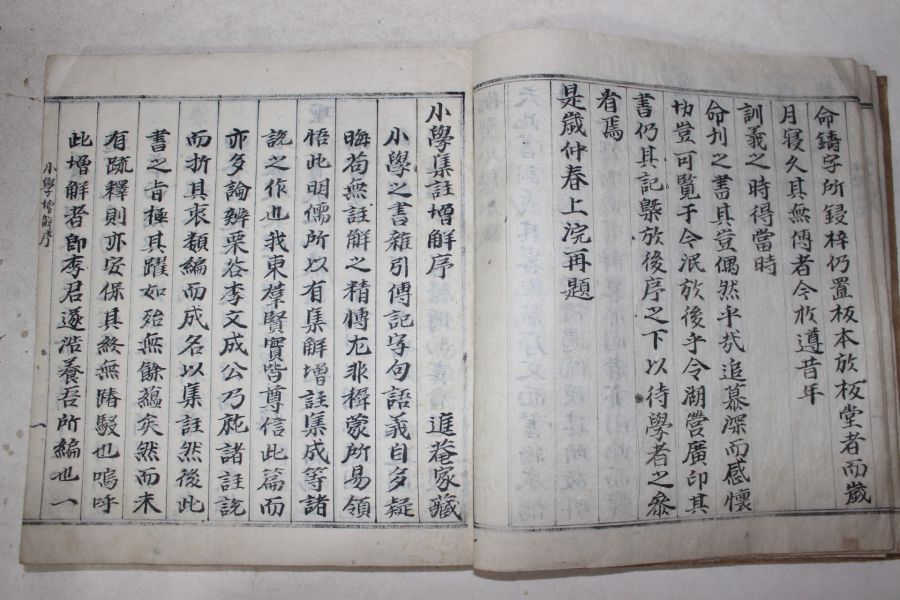 命鑄字所鋟梓仍置板本於板堂者而歲
月寖久其無傳者今於遵昔年
訓義之時得當時
命刊之書其豈偶然乎哉追慕深而感懷
切豈可覽于今泯於後乎令湖營廣印其
書仍其記槩於後序之下以待學者之叅
看焉
是歲仲春上浣再題
小學集註增解序 進菴家藏
小學之書雜引傳記字句語義自多疑
晦苟無註解之精博尤非穉蒙所易領
悟此明儒所以有集解增註集成等諸
說之作也我東羣賢實皆尊信此篇而
亦多論辨栗谷李文成公乃於諸註說
而折其衷類編而成名以集註然後此
書之旨極其躍如殆無餘蘊矣然而未
有疏釋則亦安保其終無踳駁也嗚呼
此增解者卽李君遂浩養吾所編也
小學增解序
一